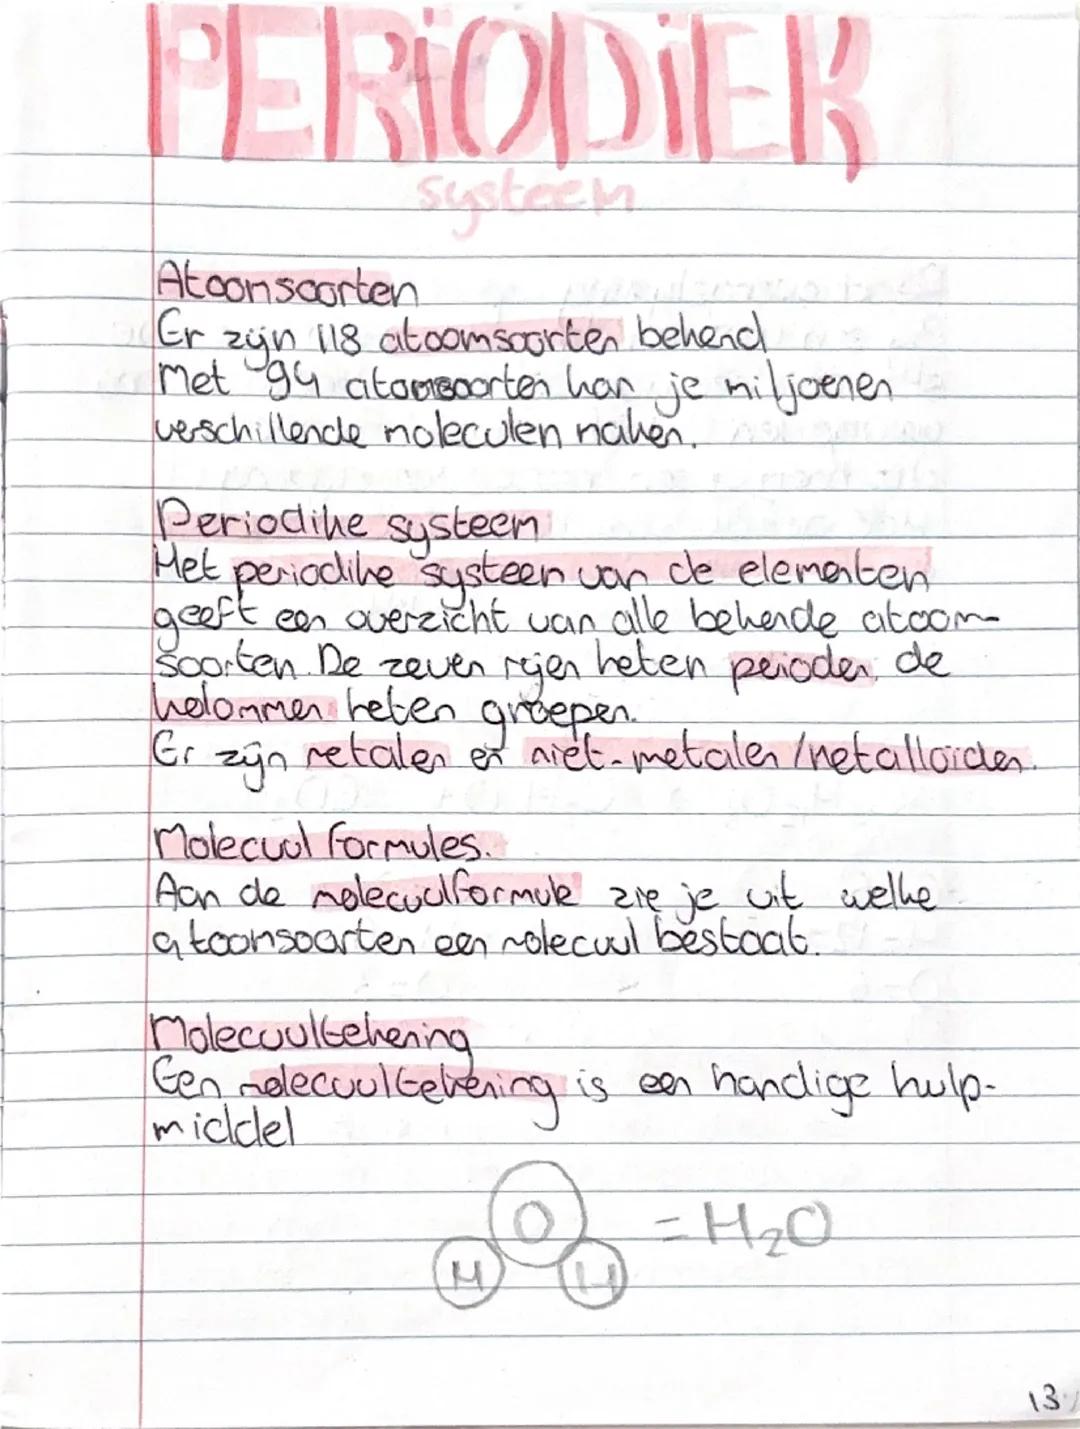 PERIODIEK
systeem
Atoomsoorten
Er zijn 118 atoomsoorten bekend
Met 94 atoomsoorten kan je miljoenen
verschillende moleculen maken.
Periodike systeem
Het periodike systeem van de elementen
geeft een overzicht van alle bekende atoom-
soorten. De zeven rijen heten perioden, de
kolommen heten groepen.
Er zijn metalen en niet-metalen/metalloïden.
Molecuul formules.
Aan de molecuulformule zie je uit welke
atoomsoorten een molecuul bestaat.
Molecuultekening
Een molecuultekening is een handige hulp-
middel
O
= H₂O
H H
13